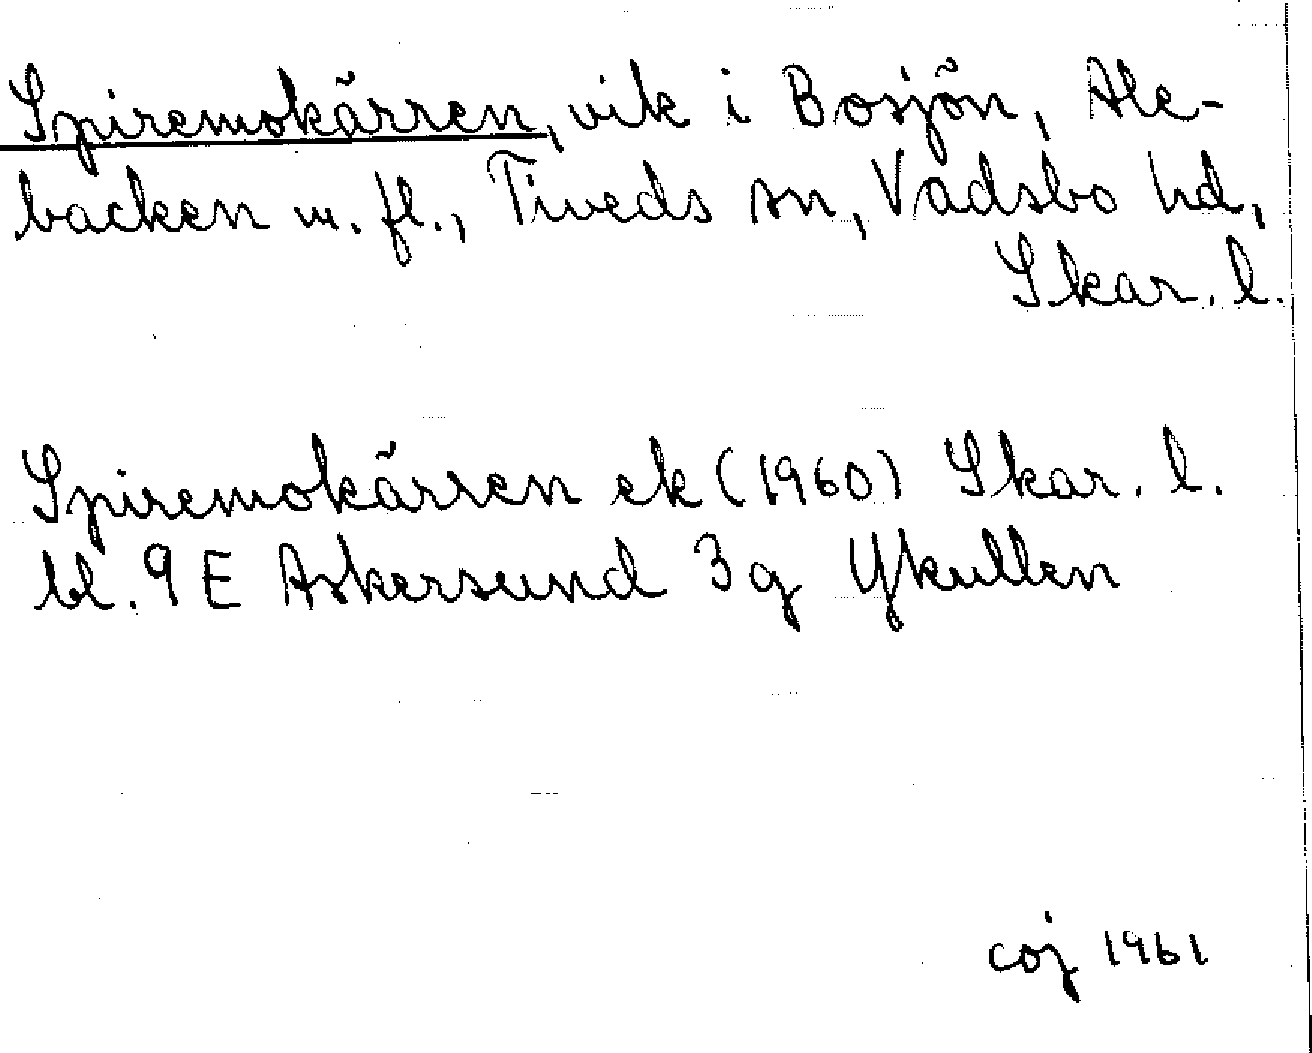 Spiremokärren, vik i Bosjön, Ale-
backen m. fl., Tiveds sn, Vadsbo hd,
Skar. l.
Spiremokärren ek (1960) Skar. l.
bl. 9 E Askersund 3g Ykullen
coj 1961